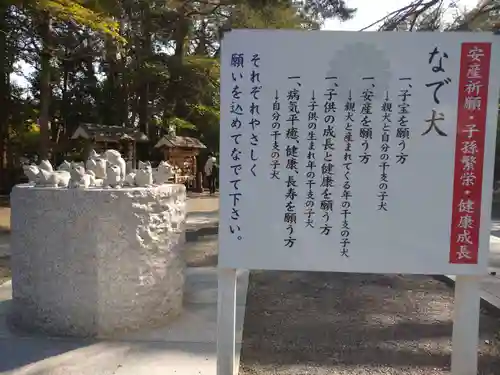 安産祈願・子孫繁栄・健康成長
なで犬
一、子宝を願う方
→親犬と自分の干支の子犬
一、安産を願う方
→親犬と生まれてくる年の干支の子犬
一、子供の成長と健康を願う方
→子供の生まれ年の干支の子犬
一、病気平癒、健康、長寿を願う方
→自分の干支の子犬
それぞれやさしく
願いを込めてなでて下さい。